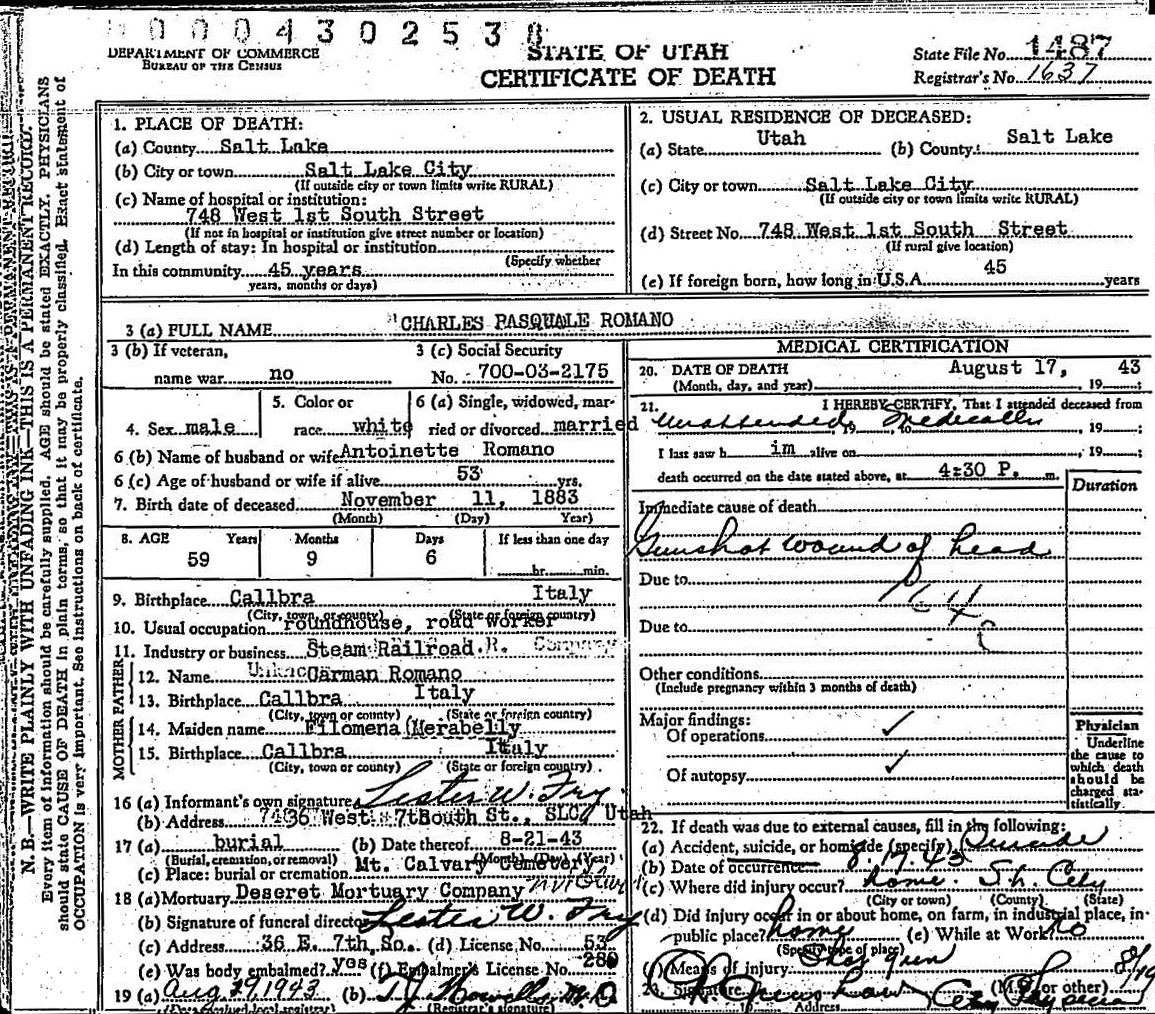 0004302538
DEPARTMENT OF COMMERCE
BUREAU OF THE CENSUS
STATE OF UTAH
CERTIFICATE OF DEATH
State File No. 1487
Registrar's No. 1637
N. B.—WRITE PLAINLY WITH UNFADING INK—THIS IS A PERMANENT RECORD.
Every item of information should be carefully supplied. AGE should be stated EXACTLY. PHYSICIANS
should state CAUSE OF DEATH in plain terms, so that it may be properly classified. Exact statement of
OCCUPATION is very important. See instructions on back of certificate.
1. PLACE OF DEATH:
(a) County Salt Lake
(b) City or town Salt Lake City
(If outside city or town limits write RURAL)
(c) Name of hospital or institution:
748 West 1st South Street
(If not in hospital or institution give street number or location)
(d) Length of stay: In hospital or institution
(Specify whether
In this community 45 years
years, months or days)
2. USUAL RESIDENCE OF DECEASED:
(a) State Utah (b) County: Salt Lake
(c) City or town Salt Lake City
(If outside city or town limits write RURAL)
(d) Street No. 748 West 1st South Street
(If rural give location)
(e) If foreign born, how long in U.S.A. 45 years
3 (a) FULL NAME CHARLES PASQUALE ROMANO
3 (b) If veteran,
name war no
3 (c) Social Security
No. 700-03-2175
4. Sex male
5. Color or
race white
6 (a) Single, widowed, mar-
ried or divorced married
6 (b) Name of husband or wife Antoinette Romano
6 (c) Age of husband or wife if alive 53 yrs.
7. Birth date of deceased November 11, 1883
(Month) (Day) Year)
8. AGE Years Months Days If less than one day
59 9 6 hr. min.
9. Birthplace Callbra Italy
(City, town, or county) (State or foreign country)
10. Usual occupation roundhouse, road worker
11. Industry or business Steam Railroad R. Company
FATHER
12. Name Carman Romano
13. Birthplace Callbra Italy
(City, town or county) (State or foreign country)
MOTHER
14. Maiden name Filomena Merabelly
15. Birthplace Callbra Italy
(City, town or county) (State or foreign country)
16 (a) Informant's own signature Lester W. Fry
(b) Address West 7th South St., SLC, Utah
17 (a) burial (b) Date thereof 8-21-43
(Burial, cremation, or removal) (Month) (Day) (Year)
(c) Place: burial or cremation Mt. Calvary Cemetery
18 (a) Mortuary Deseret Mortuary Company
(b) Signature of funeral director Lester W. Fry
(c) Address 36 E. 7th So. (d) License No. 53
(e) Was body embalmed? yes (f) Embalmer's License No. 280
19 (a) Aug 19, 1943 (b) T. J. Howells, M.D.
(Registrar's signature)
MEDICAL CERTIFICATION
20. DATE OF DEATH August 17, 43
(Month, day, and year) , 19 ;
21. I HEREBY CERTIFY, That I attended deceased from
Unattended , 19 , to Medically , 19 ;
I last saw h im alive on , 19 ;
death occurred on the date stated above, at 4:30 P. m.
Duration
Immediate cause of death
Gunshot wound of head
Due to
164
Due to
Other conditions
(Include pregnancy within 3 months of death)
Major findings:
Of operations ✓
Of autopsy ✓
Physician
Underline
the cause to
which death
should be
charged sta-
tistically.
22. If death was due to external causes, fill in the following:
(a) Accident, suicide, or homicide (specify) Suicide
(b) Date of occurrence 8.17.43
(c) Where did injury occur? home. S. L. City
(City or town) (County) (State)
(d) Did injury occur in or about home, on farm, in industrial place, in-
public place? home (e) While at Work? No
(Specify type of place)
(f) Means of injury Shot gun
23. Signature (M.D. or other) 8/19
Address City Physician